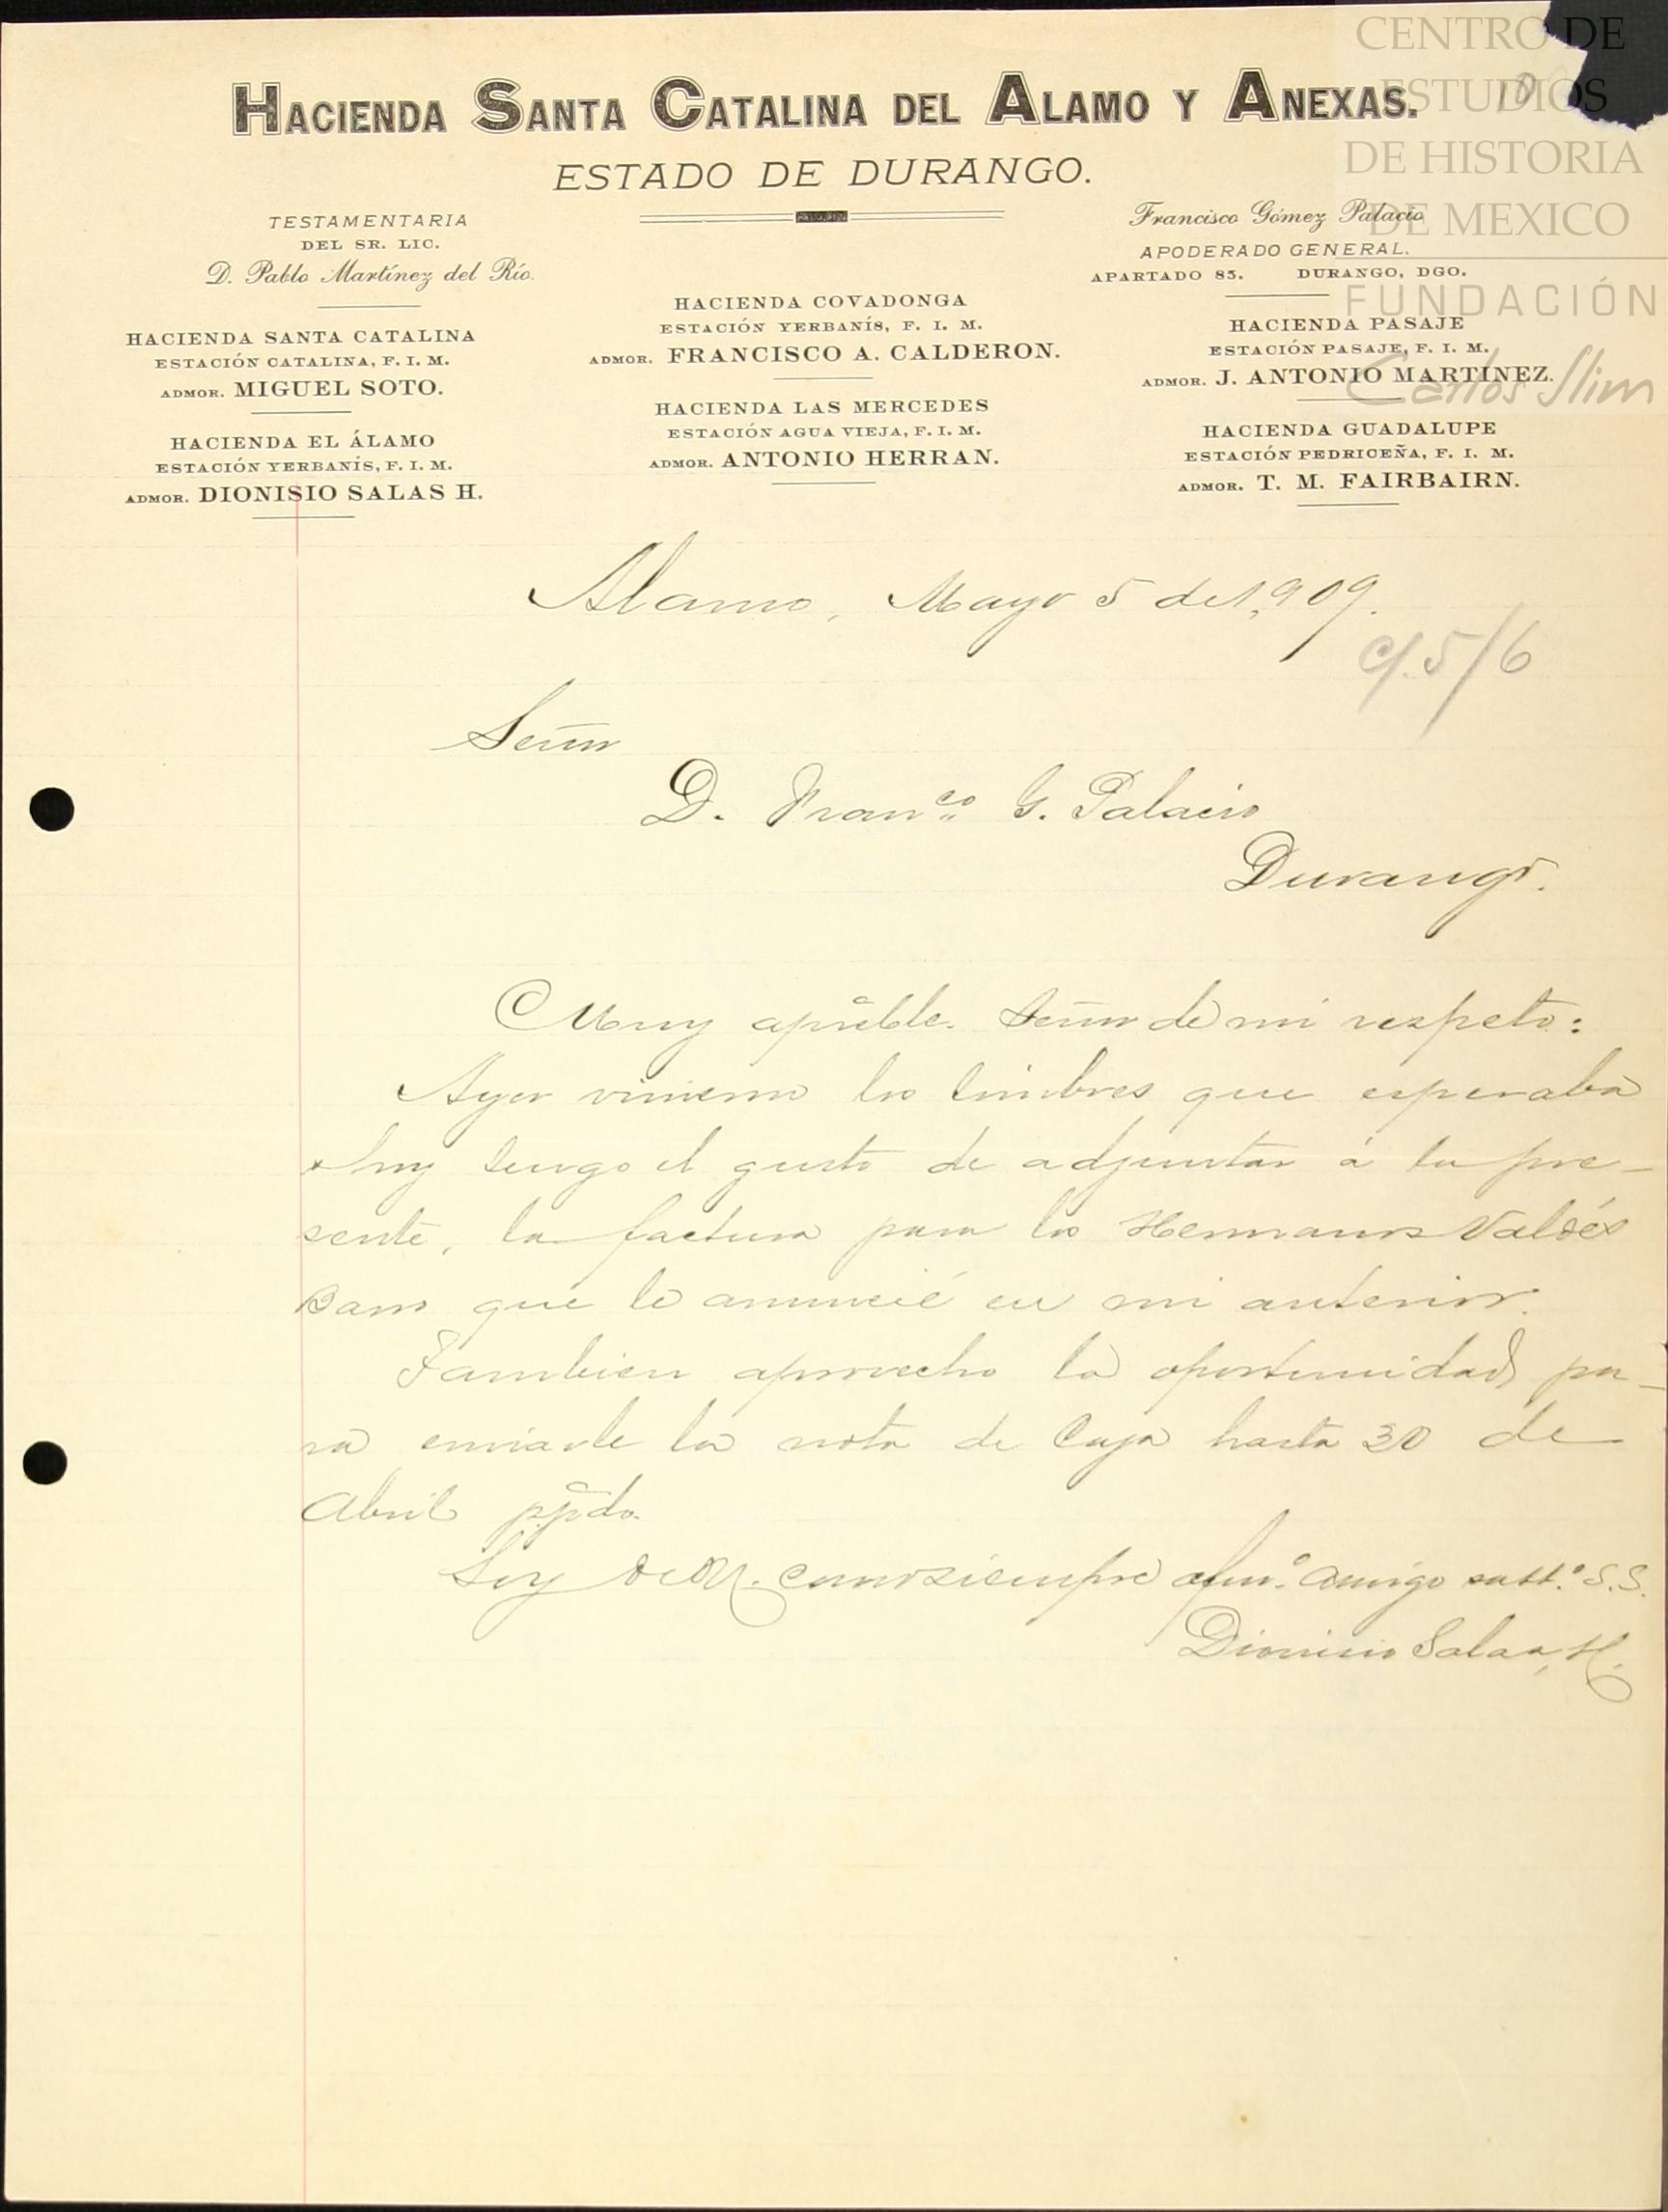 HACIENDA SANTA CATALINA DEL ALAMO Y ANEXAS.
ESTADO DE DURANGO.
TESTAMENTARIA
DEL SR. LIC.
D. Pablo Martínez del Río.
HACIENDA SANTA CATALINA
ESTACIÓN CATALINA, F. I. M.
ADMOR. MIGUEL SOTO.
HACIENDA EL ÁLAMO
ESTACIÓN YERBANÍS, F. I. M.
ADMOR. DIONISIO SALAS H.
HACIENDA COVADONGA
ESTACIÓN YERBANÍS, F. I. M.
ADMOR. FRANCISCO A. CALDERON.
HACIENDA LAS MERCEDES
ESTACIÓN AGUA VIEJA, F. I. M.
ADMOR. ANTONIO HERRAN.
Francisco Gómez Palacio
APODERADO GENERAL.
APARTADO 85. DURANGO, DGO.
HACIENDA PASAJE
ESTACIÓN PASAJE, F. I. M.
ADMOR. J. ANTONIO MARTINEZ.
HACIENDA GUADALUPE
ESTACIÓN PEDRICEÑA, F. I. M.
ADMOR. T. M. FAIRBAIRN.
CENTRO DE
ESTUDIOS
DE HISTORIA
DE MEXICO
FUNDACIÓN
Carlos Slim
Alamo, Mayo 5 de 1,909.
c/. 5/6
Señor
D. Franco. G. Palacio
Durango.
Muy apreble. Señor de mi respeto:
Ayer vinieron los timbres que esperaba
y hoy tengo el gusto de adjuntar á la pre-
sente, la factura para los Hermanos Valdés
que le anuncié en mi anterior.
Tambien aprovecho la oportunidad pa-
ra enviarle la nota de Caja hasta 30 de
Abril ppdo.
Soy de U. como siempre afmo. amigo y S.S.
Dionisio Salas H.